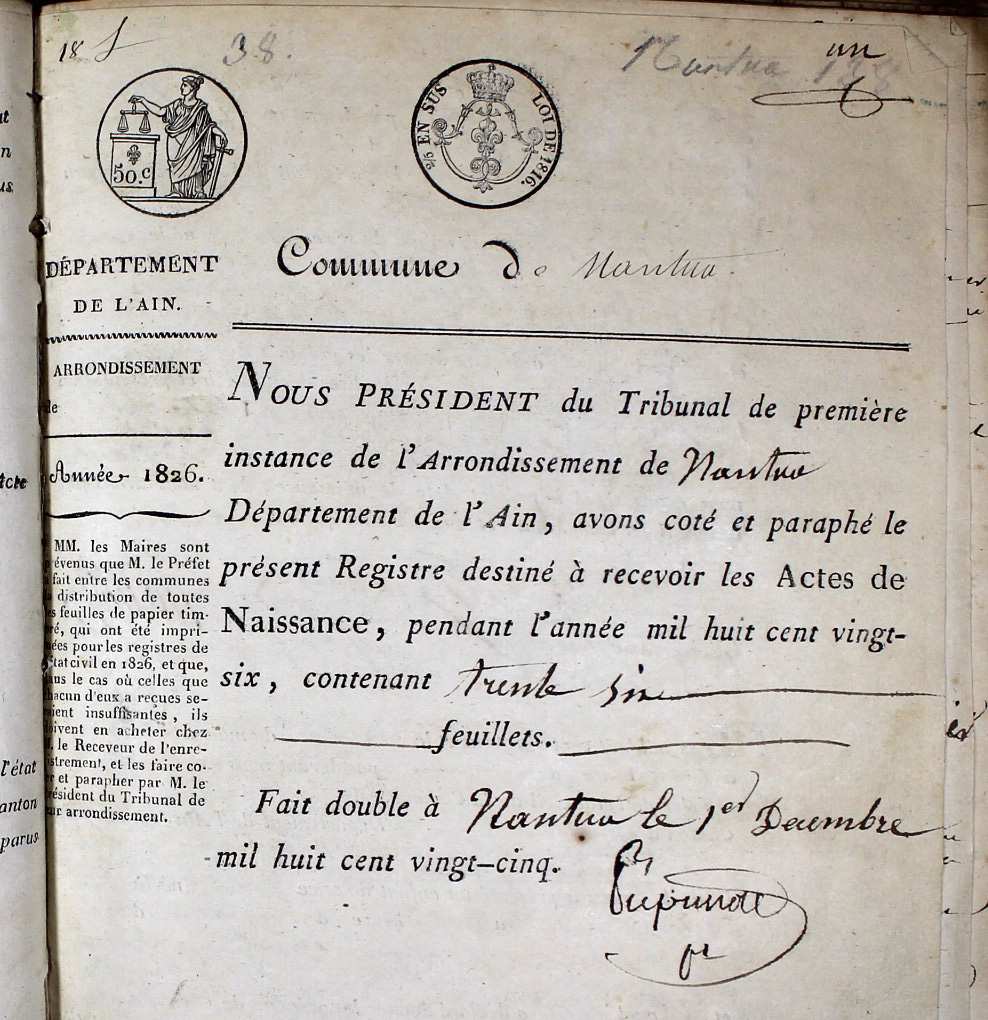 18
38.
Nantua
un
50.c
2/5 EN SUS LOI DE 1816.
DÉPARTEMENT
DE L'AIN.
ARRONDISSEMENT
de
Année 1826.
MM. les Maires sont
évenus que M. le Préfet
fait entre les communes
distribution de toutes
s feuilles de papier tim-
ré, qui ont été impri-
ées pour les registres de
tat civil en 1826, et que,
ns le cas où celles que
hacun d'eux a reçues se-
ient insuffisantes, ils
oivent en acheter chez
. le Receveur de l'enre-
strement, et les faire co-
r et parapher par M. le
ésident du Tribunal de
ur arrondissement.
Commune de Nantua
NOUS PRÉSIDENT du Tribunal de première
instance de l'Arrondissement de Nantua
Département de l'Ain, avons coté et paraphé le
présent Registre destiné à recevoir les Actes de
Naissance, pendant l'année mil huit cent vingt-
six, contenant trente six
feuillets.
Fait double à Nantua le 1er Decembre
mil huit cent vingt-cinq.
n
us.
acte
l'état
anton
parus